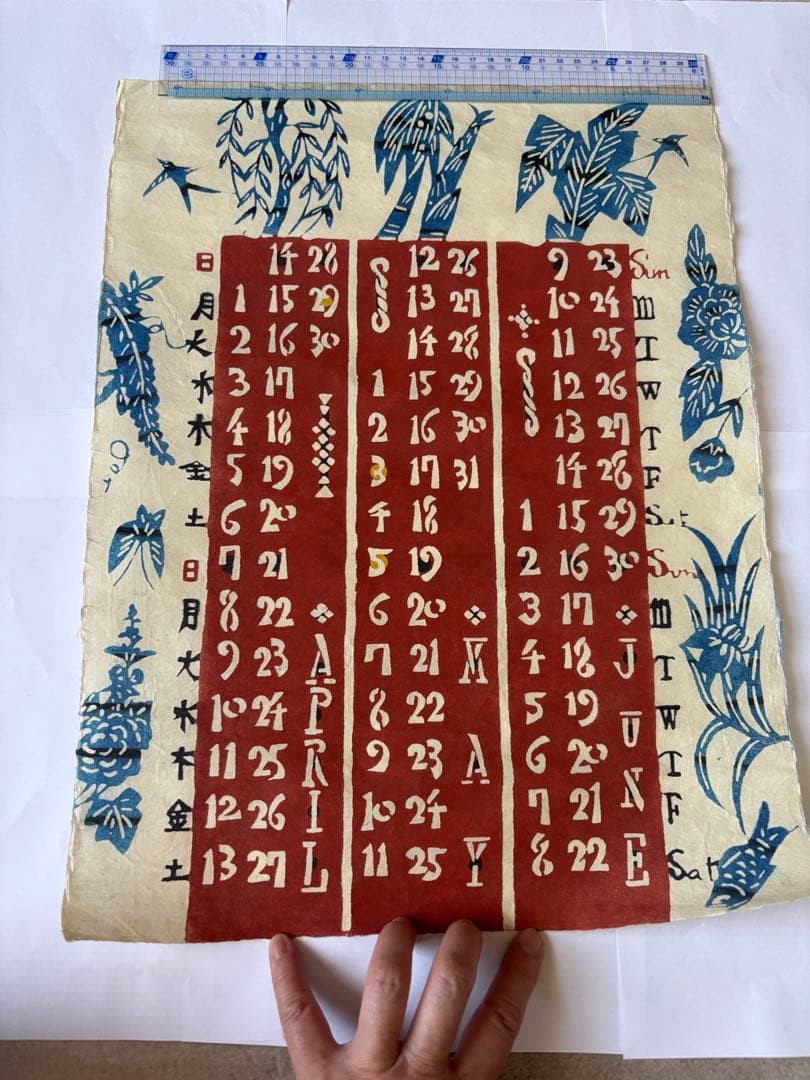 日 14 28 12 26 9 23 Sun
月 1 15 29 13 27 10 24 M
火 2 16 30 14 28 11 25 T
水 3 17 1 15 29 12 26 W
木 4 18 2 16 30 13 27 T
金 5 19 3 17 31 14 28 F
土 6 20 4 18 1 15 29 Sat
日 7 21 5 19 2 16 30 Sun
月 8 22 6 20 3 17 M
火 9 23 A 7 21 M 4 18 J T
水 10 24 P 8 22 5 19 U W
木 11 25 R 9 23 A 6 20 N T
金 12 26 I 10 24 7 21 F
土 13 27 L 11 25 Y 8 22 E Sat